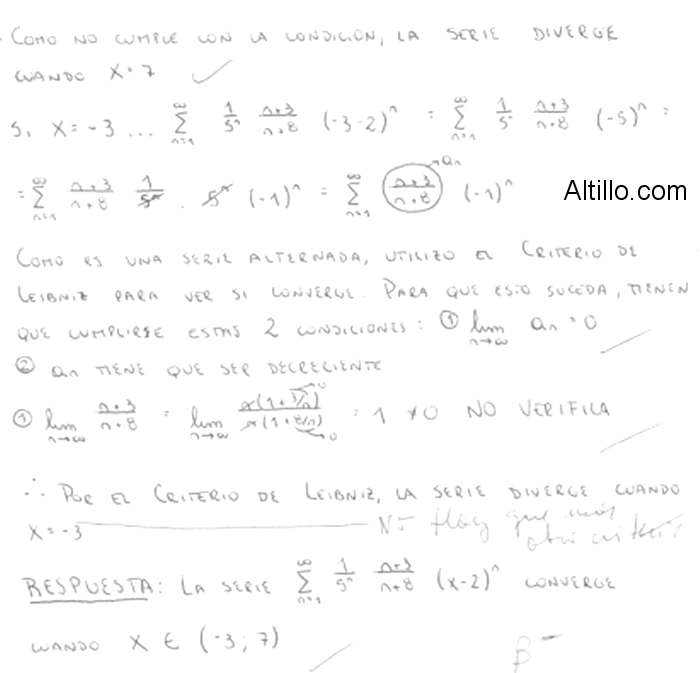 - COMO NO CUMPLE CON LA CONDICIÓN, LA SERIE DIVERGE
CUANDO X=7
S. X=-3 ... ∑_{n=1}^{∞} 1/5^n (n+3)/(n+8) (-3-2)^n = ∑_{n=1}^{∞} 1/5^n (n+3)/(n+8) (-5)^n =
= ∑_{n=1}^{∞} (n+3)/(n+8) 1/5^n . 5^n (-1)^n = ∑_{n=1}^{∞} (n+3)/(n+8) (-1)^n → an
Altillo.com
COMO ES UNA SERIE ALTERNADA, UTILIZO EL CRITERIO DE
LEIBNIZ PARA VER SI CONVERGE. PARA QUE ESTO SUCEDA, TIENEN
QUE CUMPLIRSE ESTAS 2 CONDICIONES: ① lim_{n→∞} an = 0
② an TIENE QUE SER DECRECIENTE
① lim_{n→∞} (n+3)/(n+8) = lim_{n→∞} n(1+3/n)→0 / n(1+8/n)→0 = 1 ≠ 0 NO VERIFICA
∴ POR EL CRITERIO DE LEIBNIZ, LA SERIE DIVERGE CUANDO
X=-3 No Hay que
RESPUESTA: LA SERIE ∑_{n=1}^{∞} 1/5^n (n+3)/(n+8) (x-2)^n CONVERGE
CUANDO X ∈ (-3;7)
B-